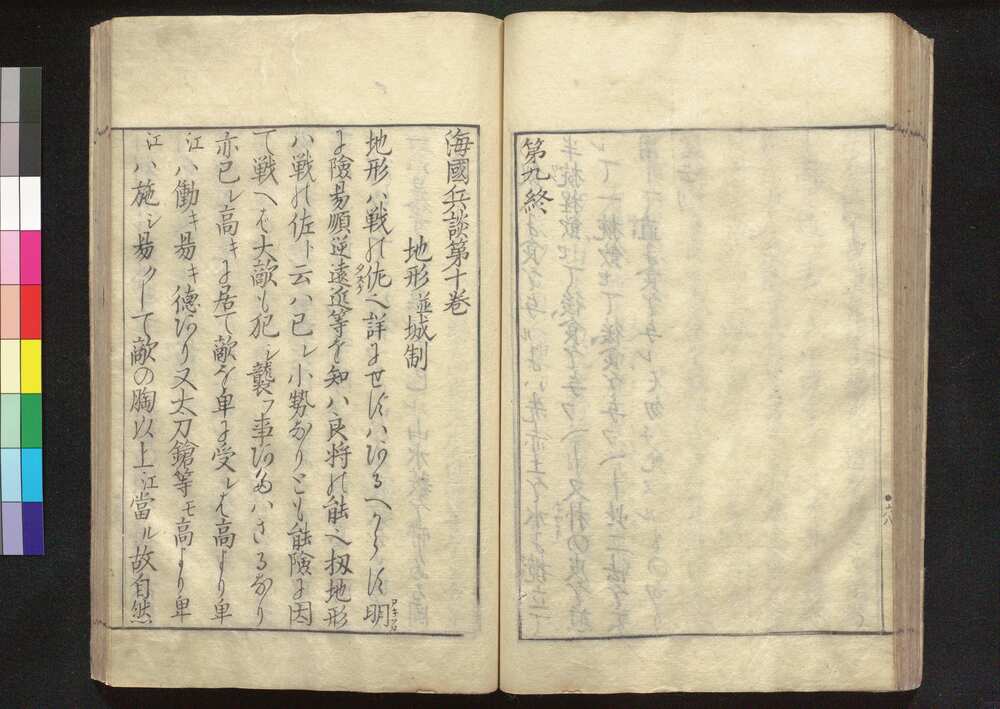 第九終
海國兵談第十巻
地形並城制
地形ハ戦の佐也詳にせずハあるへからず明
タスケ
アキラカ
に險易順逆遠近等を知ハ良将の能也扨地形
ハ戦の佐ト云ハ己レ小勢なりとも能險に因
て戦へば大敵も犯シ襲フ事ハさるなり
亦己レ高キに居て敵を卑に受レば高より卑
江ハ働キ易キ徳あり又太刀鎗等モ高より卑
江ハ施シ易クして敵の胸以上江當ル故自然